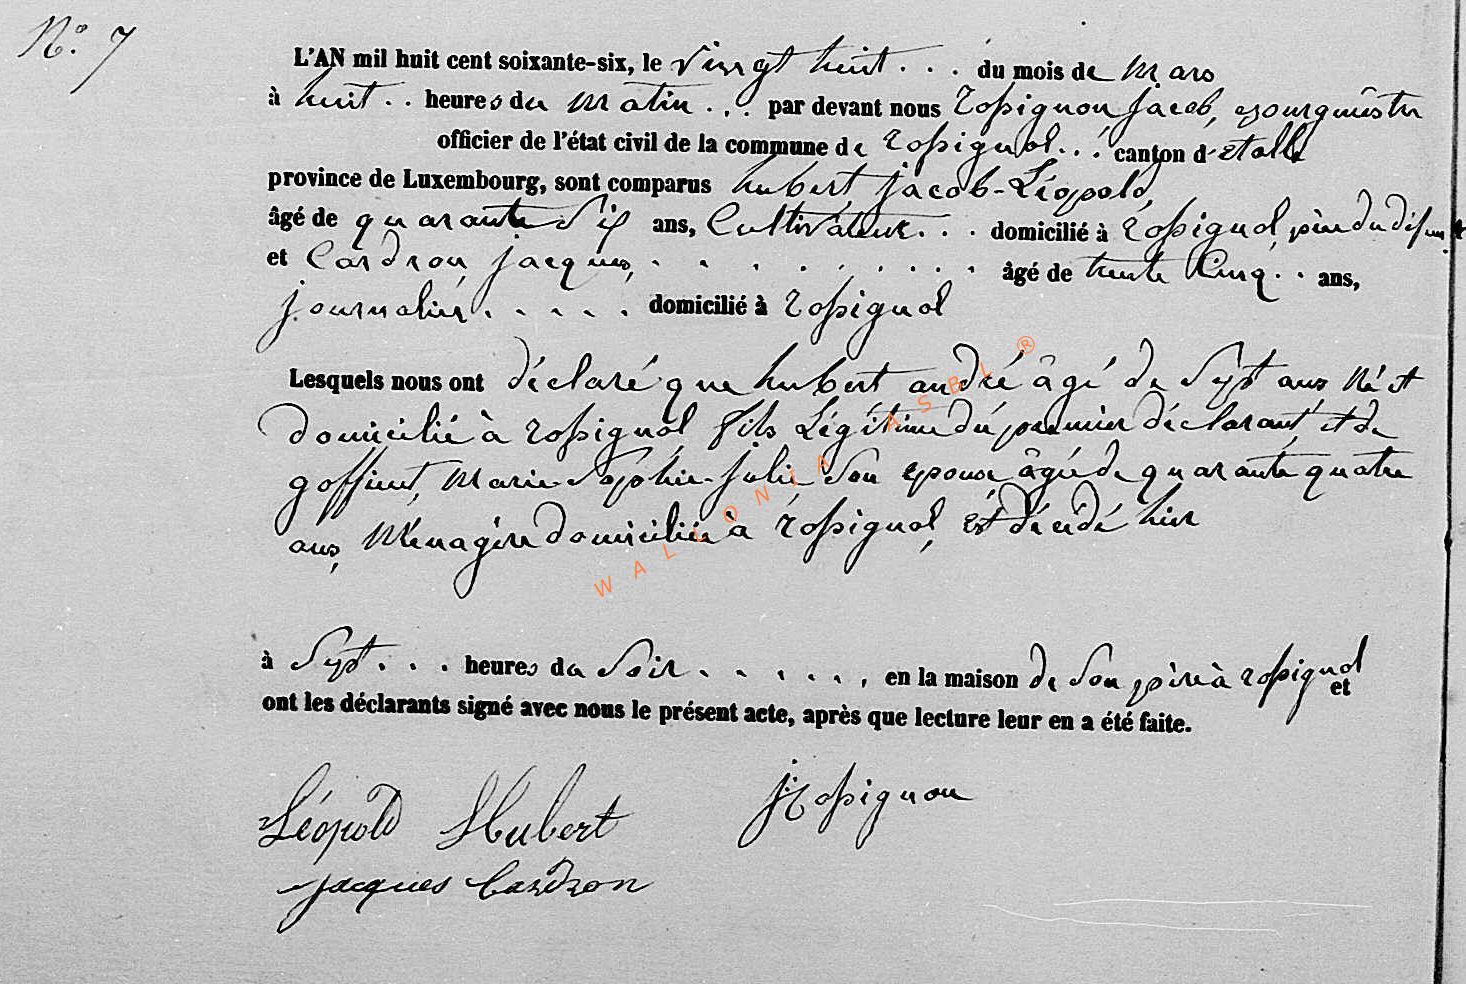 N° 7
L'AN mil huit cent soixante-six, le vingt huit . . . du mois de Mars
à huit . . heures du matin . . . par devant nous Rossignon Jacob, Bourgmestre
officier de l'état civil de la commune de Rossignol . . . canton d'Etalle
province de Luxembourg, sont comparus hubert jacob-Léopold,
âgé de quarante six ans, Cultivateur . . . domicilié à Rossignol, père du défunt
et Cardron Jacques, . . . . . . . . . . âgé de trente cinq . . ans,
journalier . . . . . domicilié à Rossignol
Lesquels nous ont déclaré que hubert andré âgé de Sept ans Né et
domicilié à Rossignol, fils Légitime du premier déclarant, et de
goffinet, Marie-Sophie-Julie Son epouse âgée de quarante quatre
ans, Ménagère domiciliée à Rossignol, est décédé hier
à Sept . . . heures du Soir . . . . . . , en la maison de Son père à Rossignol
et
ont les déclarants signé avec nous le présent acte, après que lecture leur en a été faite.
Léopold Hubert
J Rossignon
Jacques Cardron
WALLONIA ASBL ®